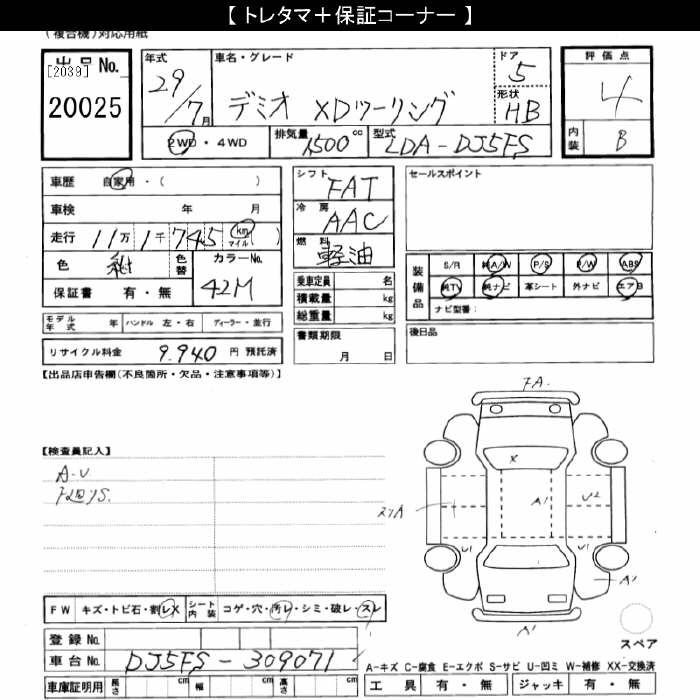 【 トレタマ＋保証コーナー 】
(複合機)対応用紙
出品No.
[2039]
20025
年式 29/7月
車名・グレード
デミオ XDツーリング
ドア 5
形状 HB
2WD・4WD
排気量 1500 cc
型式 LDA-DJ5FS
評価点 4
内装 B
車歴 自家用・( )
車検 年 月
走行 11万 1千 745 km マイル ( )
色 紺 色替
カラーNo. 42M
保証書 有・無
モデル年式 年 ハンドル 左・右 ディーラー・並行
リサイクル料金 9.940 円 預託済
シフト FAT
冷房 AAC
燃料 軽油
乗車定員 名
積載量 kg
総重量 kg
書類期限
月 日
セールスポイント
装備品
S/R 純A/W P/S P/W ABS
純TV 純ナビ 革シート 外ナビ エアB
ナビ型番:
後日品
【出品店申告欄(不良箇所・欠品・注意事項等)】
【検査員記入】
A・U
FA
X
A1
U2
U1
U1
A1
A1
FW キズ・トビ石・割レX
シート内装 コゲ・穴・汚レ・シミ・破レ・スレ
登録No.
車台No. DJ5FS-309071
車庫証明用 長さ cm 幅 cm 高さ cm
スペア
A-キズ C-腐食 E-エクボ S-サビ U-凹ミ W-補修 XX-交換済
工具 有・無 ジャッキ 有・無